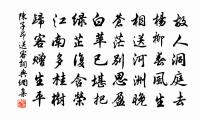 故人洞庭去
楊柳春風生
相送河洲晚
蒼茫別思盈
白苹已堪把
綠芷復含榮
江南多桂樹
歸客贈生平
陳子昂送客詞典網集